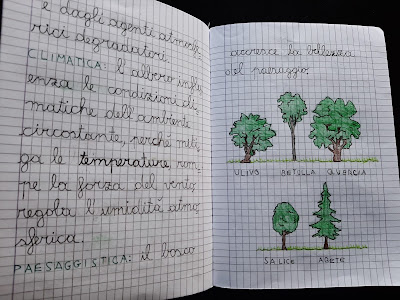 e dagli agenti atmosfe
rici degradatori.
CLIMATICA: l'albero influ
enza le condizioni cli
matiche dell'ambiente
circostante, perché miti
ga le temperature rom
pe la forza del vento,
regola l'umidità atmo
sferica.
PAESAGGISTICA: il bosco
accresce la bellezza
del paesaggio.
ULIVO BETULLA QUERCIA
SALICE ABETE